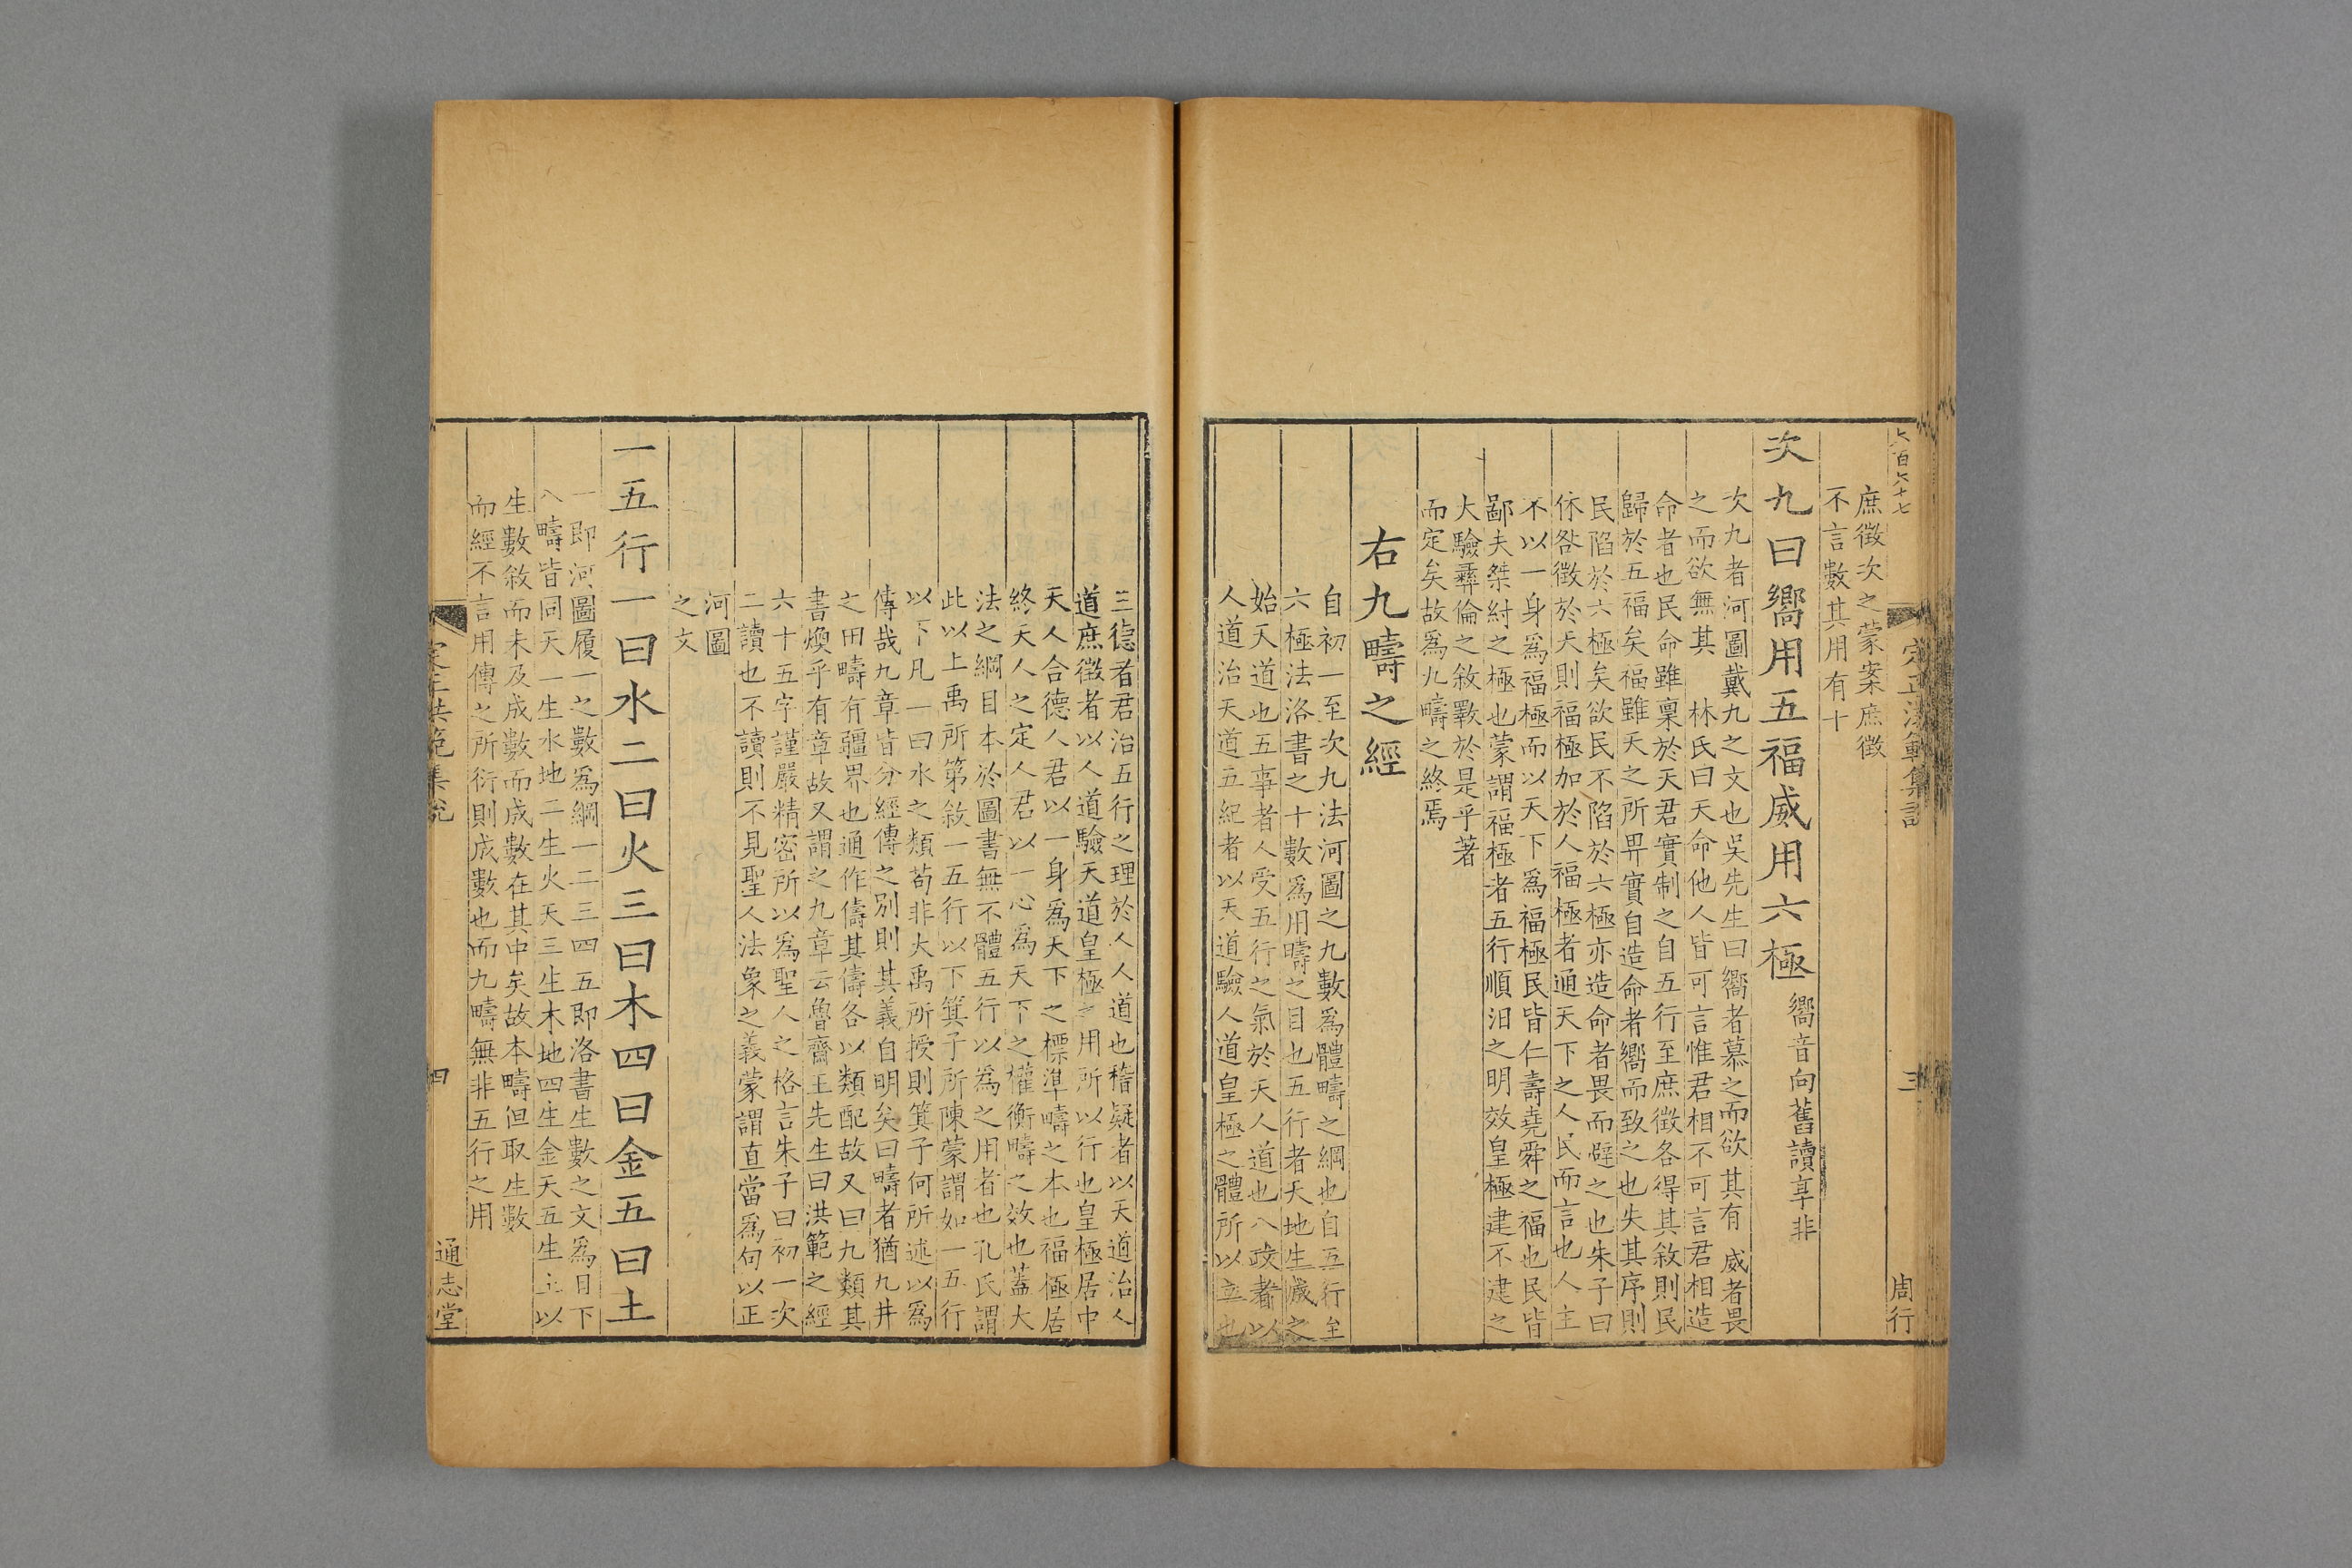 六百六十七
定正洪範集說
三
周行
庶徵次之蒙案庶徵
不言數其用有十
次九曰嚮用五福威用六極
嚮音向舊讀享非
次九者河圖戴九之文也吳先生曰嚮者慕之而欲其有威者畏
之而欲無其 林氏曰天命他人皆可言惟君相不可言君相造
命者也民命雖稟於天君實制之自五行至庶徵各得其敘則民
歸於五福矣福雖天之所畀實自造命者嚮而致之也失其序則
民陷於六極矣欲民不陷於六極亦造命者畏而避之也朱子曰
休咎徵於天則福極加於人福極者通天下之人民而言也人主
不以一身爲福極而以天下爲福極民皆仁壽堯舜之福也民皆
鄙夭桀紂之極也蒙謂福極者五行順汨之明效皇極建不建之
大驗彝倫之敘斁於是乎著
而定矣故爲九疇之終焉
右九疇之經
自初一至次九法河圖之九數爲體疇之綱也自五行至
六極法洛書之十數爲用疇之目也五行者天地生歲之
始天道也五事者人受五行之氣於天人道也八政者以
人道治天道五紀者以天道驗人道皇極之體所以立也
三德者君治五行之理於人人道也稽疑者以天道治人
道庶徵者以人道驗天道皇極之用所以行也皇極居中
天人合德人君以一身爲天下之標準疇之本也福極居
終天人之定人君以一心爲天下之權衡疇之效也蓋大
法之綱目本於圖書無不體五行以爲之用者也孔氏謂
此以上禹所第敘一五行以下箕子所陳蒙謂如一五行
以下凡一曰水之類苟非大禹所授則箕子何所述以爲
傳哉九章皆分經傳之別則其義自明矣曰疇者猶九井
之田疇有疆界也通作儔其儔各以類配故又曰九類其
書煥乎有章故又謂之九章云魯齋王先生曰洪範之經
六十五字謹嚴精密所以爲聖人之格言朱子曰初一次
二讀也不讀則不見聖人法象之義蒙謂直當爲句以正
河圖
之文
一五行一曰水二曰火三曰木四曰金五曰土
一即河圖履一之數爲綱一二三四五即洛書生數之文爲目下
八疇皆同天一生水地二生火天三生木地四生金天五生土以
生數敘而未及成數而成數在其中矣故本疇但取生數
而經不言用傳之所衍則成數也而九疇無非五行之用
定正洪範集說
四
通志堂